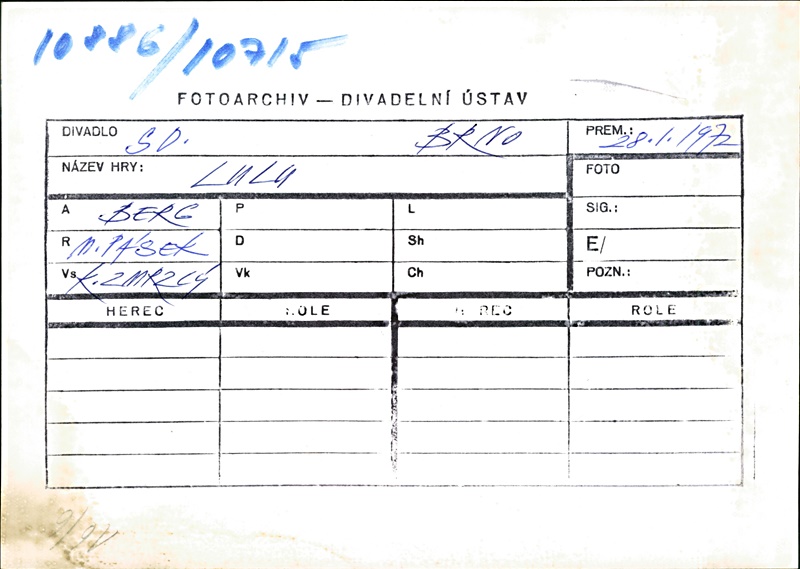 10886/10715
FOTOARCHIV — DIVADELNÍ ÚSTAV
DIVADLO SD. BRNO PREM.: 28.1.1972
NÁZEV HRY: LULU FOTO
A BERG P L SIG.:
R M. PÁSEK D Sh E/
Vs K. ZMRZLÝ Vk Ch POZN.:
HEREC ROLE HEREC ROLE